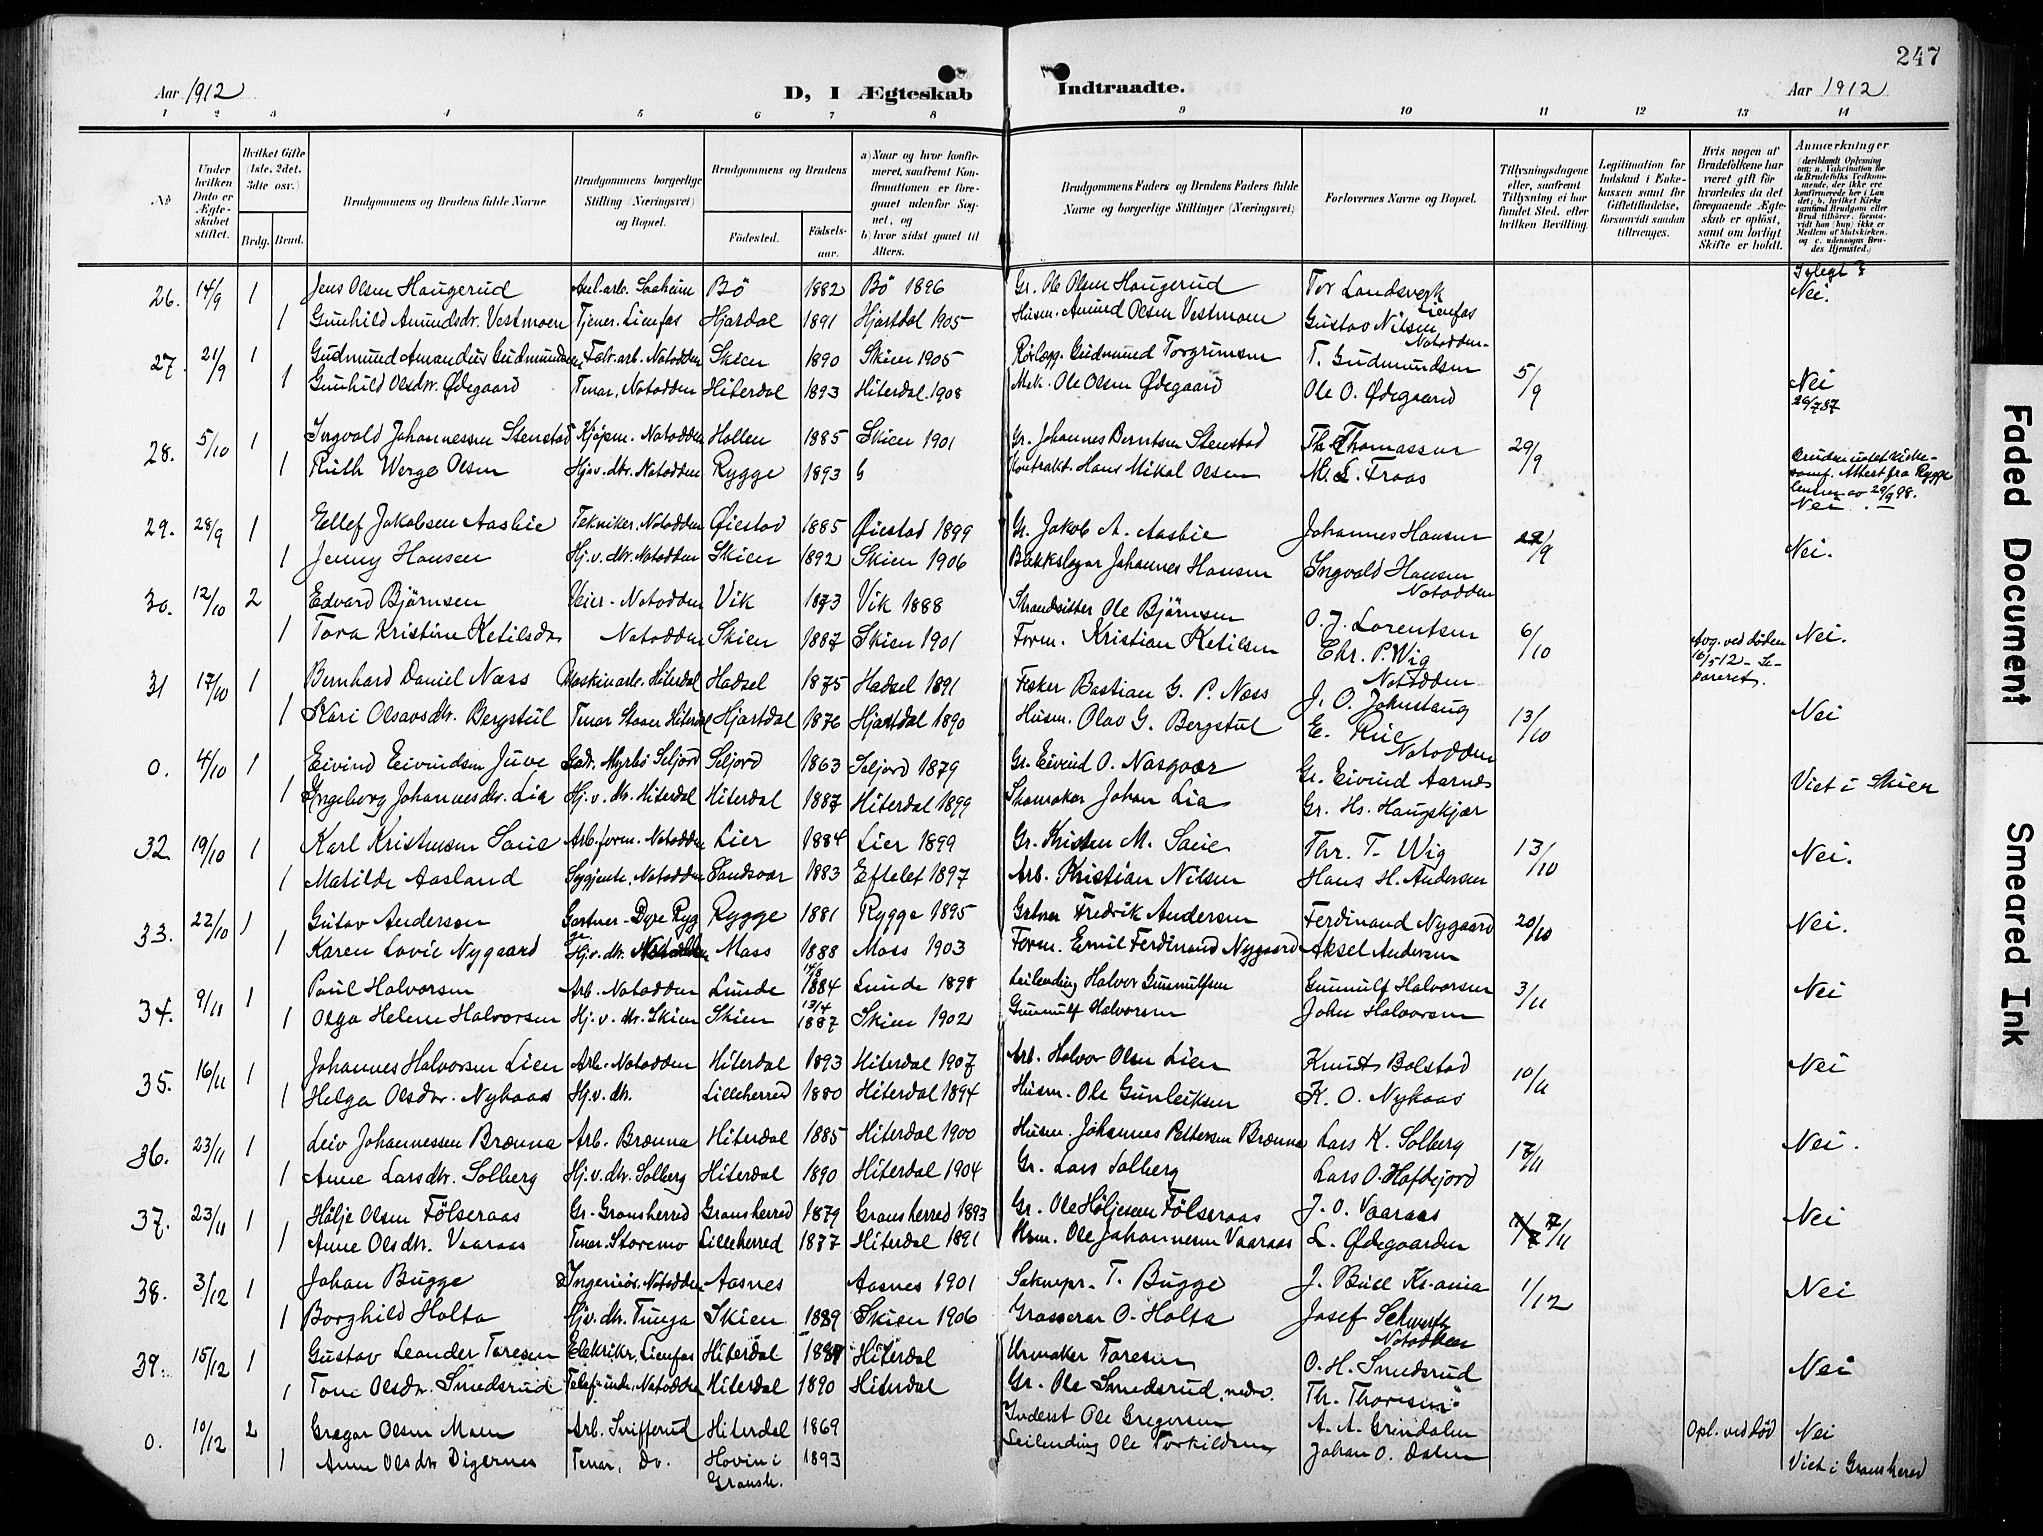 247
Aar 1912
D, I Ægteskab Indtraadte.
Aar 1912
1 2 3 4 5 6 7 8 9 10 11 12 13 14
No
Under hvilken Dato er Ægteskabet stiftet.
Hvilket Gifte (1ste, 2det, 3die osv.)
Brdg. Brud.
Brudgommens og Brudens fulde Navne
Brudgommens borgerlige Stilling (Næringsvei) og Bopæl.
Brudgommens og Brudens
Fødested.
Fødselsaar.
a) Naar og hvor konfirmeret, saafremt Konfirmationen er foregaaet udenfor Sognet, og
b) hvor sidst gaaet til Alters.
Brudgommens Faders og Brudens Faders fulde Navne og borgerlige Stillinger (Næringsvei)
Forlovernes Navne og Bopæl.
Tillysningsdagene eller, saafremt Tillysning ei har fundet Sted, efter hvilken Bevilling.
Legitimation for Indskud i Enkekassen samt for Giftetilladelse, forsaavidt saadan tiltrænges.
Hvis nogen af Brudefolkene har været gift før hvorledes da det foregaaende Ægteskab er opløst, samt om lovligt Skifte er holdt.
Anmærkninger
26. 14/9 1 Jens Olsen Haugerud Anl.arb. Saaheim Bö 1882 Bö 1896 Gr. Ole Olsen Haugerud Tor Landsverk Lienfos Nei.
1 Gunhild Amundsdr. Vestmoen Tjener. Lienfos Hjardal 1891 Hjartdal 1905 Husm. Amund Olsen Vestmoen Gustav Nilsen Notodden
27. 21/9 1 Gudmund Amandus Gudmundsen Fabr.arb. Notodden Skien 1890 Skien 1905 Rørlegg. Gudmund Torgrimsen T. Gudmundsen 5/9
1 Gunhild Olsdtr. Ødegaard Tenar, Notodden Hiterdal 1893 Hiterdal 1908 Mek. Ole Olsen Ødegaard Ole O. Ødegaard Nei
28. 5/10 1 Ingvald Johannessen Stenstad Kjöpm. Notodden Hollen 1885 Skien 1901 Gr. Johannes Berntsen Stenstad Th. Thomassen 29/9
1 Ruth Werge Olsen Hj.v. dtr. Notodden Rygge 1893 Kontrakt. Hans Mikal Olsen M. L. Traas
29. 28/9 1 Ellef Jakobsen Aasbie Tekniker. Notodden Øiestad 1885 Øiestad 1899 Gr. Jakob A. Aasbie Johannes Hansen 22/9 Nei.
1 Jenny Hansen Hj.v. dtr. Notodden Skien 1892 Skien 1906 Blikkslager Johannes Hansen Ingvald Hansen Notodden
30. 12/10 2 Edvard Björnsen Notodden Vik 1873 Vik 1888 Strandsitter Ole Björnsen O. J. Lorentsen 6/10 Avg. ved döden 16/5 12 - Nei.
1 Tora Kristine Ketilsdtr. Notodden Skien 1887 Skien 1901 Form. Kristian Ketilsen Chr. P. Wig Notodden
31 17/10 1 Bernhard Daniel Næss Maskinarb. Hiterdal Hadsel 1875 Hadsel 1891 Fisker Bastian G. P. Næss J. O. Johnskaug 13/10 Nei
1 Kari Olsavsdtr. Bergstul Tenar Staaer Hiterdal Hjartdal 1876 Hjartdal 1890 Husm. Olav G. Bergstul E. Riie Notodden
0. 4/10 1 Eivind Eivindsen Juve Myrbö Seljord Seljord 1863 Seljord 1879 Gr. Eivind O. Nasgaar Gr. Eivind Aarnes Viet i Skien
1 Ingeborg Johannesdtr. Lia Hj.v. dtr. Hiterdal Hiterdal 1887 Hiterdal 1899 Skomaker Johan Lia Gr. Hs. Haugskjær
32 19/10 1 Karl Kristensen Saue Arb.form. Notodden Lier 1884 Lier 1899 Gr. Kristen M. Saue Thr. T. Wig 13/10 Nei.
1 Matilde Aasland Sygepl. Notodden Sandsvær 1883 Eftelet 1897 Arb. Kristian Nilsen Hans H. Andersen
33. 22/10 1 Gustav Andersen Gartner - Dyre Rygge Rygge 1881 Rygge 1895 Gartner Fredrik Andersen Ferdinand Nygaard 20/10 Nei.
1 Karen Lovie Nygaard Hj.v. dtr. Notodden Moss 1888 Moss 1903 Form. Emil Ferdinand Nygaard Aksel Andersen
34. 9/11 1 Paul Halvorsen Arb. Notodden Lunde 14/8 1884 Lunde 1898 Leilending Halvor Gunnulfsen Gunnulf Halvorsen 3/11 Nei
1 Olga Helene Halvorsen Hj.v. dtr. Skien Skien 13/4 1887 Skien 1902 Gunnulf Halvorsen John Halvorsen
35. 16/11 1 Johannes Halvorsen Lien Arb. Notodden Hiterdal 1893 Hiterdal 1907 Arb. Halvor Olsen Lien Knut Bolstad 10/11 Nei
1 Helga Olsdtr. Nykaas Hj.v. dtr. Lilleherred 1880 Hiterdal 1894 Husm. Ole Gunleiksen K. O. Nykaas
36. 23/11 1 Leiv Johannessen Brænna Arb. Brænna Hiterdal 1885 Hiterdal 1900 Husm. Johannes Pettersen Brænna Lars K. Solberg 17/11 Nei.
1 Anne Larsdtr. Solberg Hj.v. dtr. Solberg Hiterdal 1890 Hiterdal 1904 Gr. Lars Solberg Lars O. Hafdejord
37. 23/11 1 Hölje Olsen Fölseraas Gr. Gransherred Gransherred 1879 Gransherred 1893 Gr. Ole Höljesen Fölseraas J. O. Vaaraas 17/11 Nei
1 Anne Olsdtr. Vaaraas Tenar. Storemo Lilleherred 1877 Hiterdal 1891 Hsm. Ole Johannesen Vaaraas L. Ødegaarden
38. 3/12 1 Johan Bugge Ingeniör. Notodden Aasnes Aasnes 1901 Sakmpr. T. Bugge J. Bull Kr.ania 1/12 Nei
1 Borghild Holta Hj.v. dtr. Tinnja Skien 1889 Skien 1906 Grosserer O. Holta Josef Schwartz Notodden
39. 15/12 1 Gustav Leander Taresen Elektrikr. Lienfos Hiterdal 1887 Hiterdal Urmaker Taresen O. H. Smedsrud Nei
1 Tone Olsdtr. Smedsrud Notodden Hiterdal 1890 Hiterdal Gr. Ole Smedsrud, nedre. Th. Thoresen
0. 10/12 2 Gregar Olsen Moen Arb. Hiterdal 1869 Inderst Ole Gregersen A. A. Grindalen Opl. ved död Nei
1 Anne Olsdtr Digernes Tenar, Do. Hovin i Gransh. 1893 Leilending Ole Torkildsen Johan O. Dalen Viet i Gransherred
Faded Document
Smeared Ink